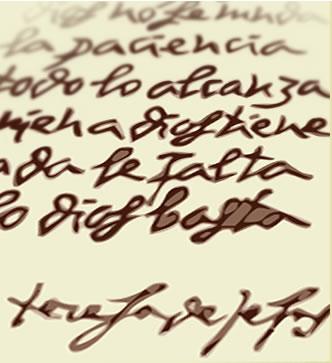 dios no se muda
la paciencia
todo lo alcanza
quien a dios tiene
nada le falta
lo dios basta
teresa de jesus